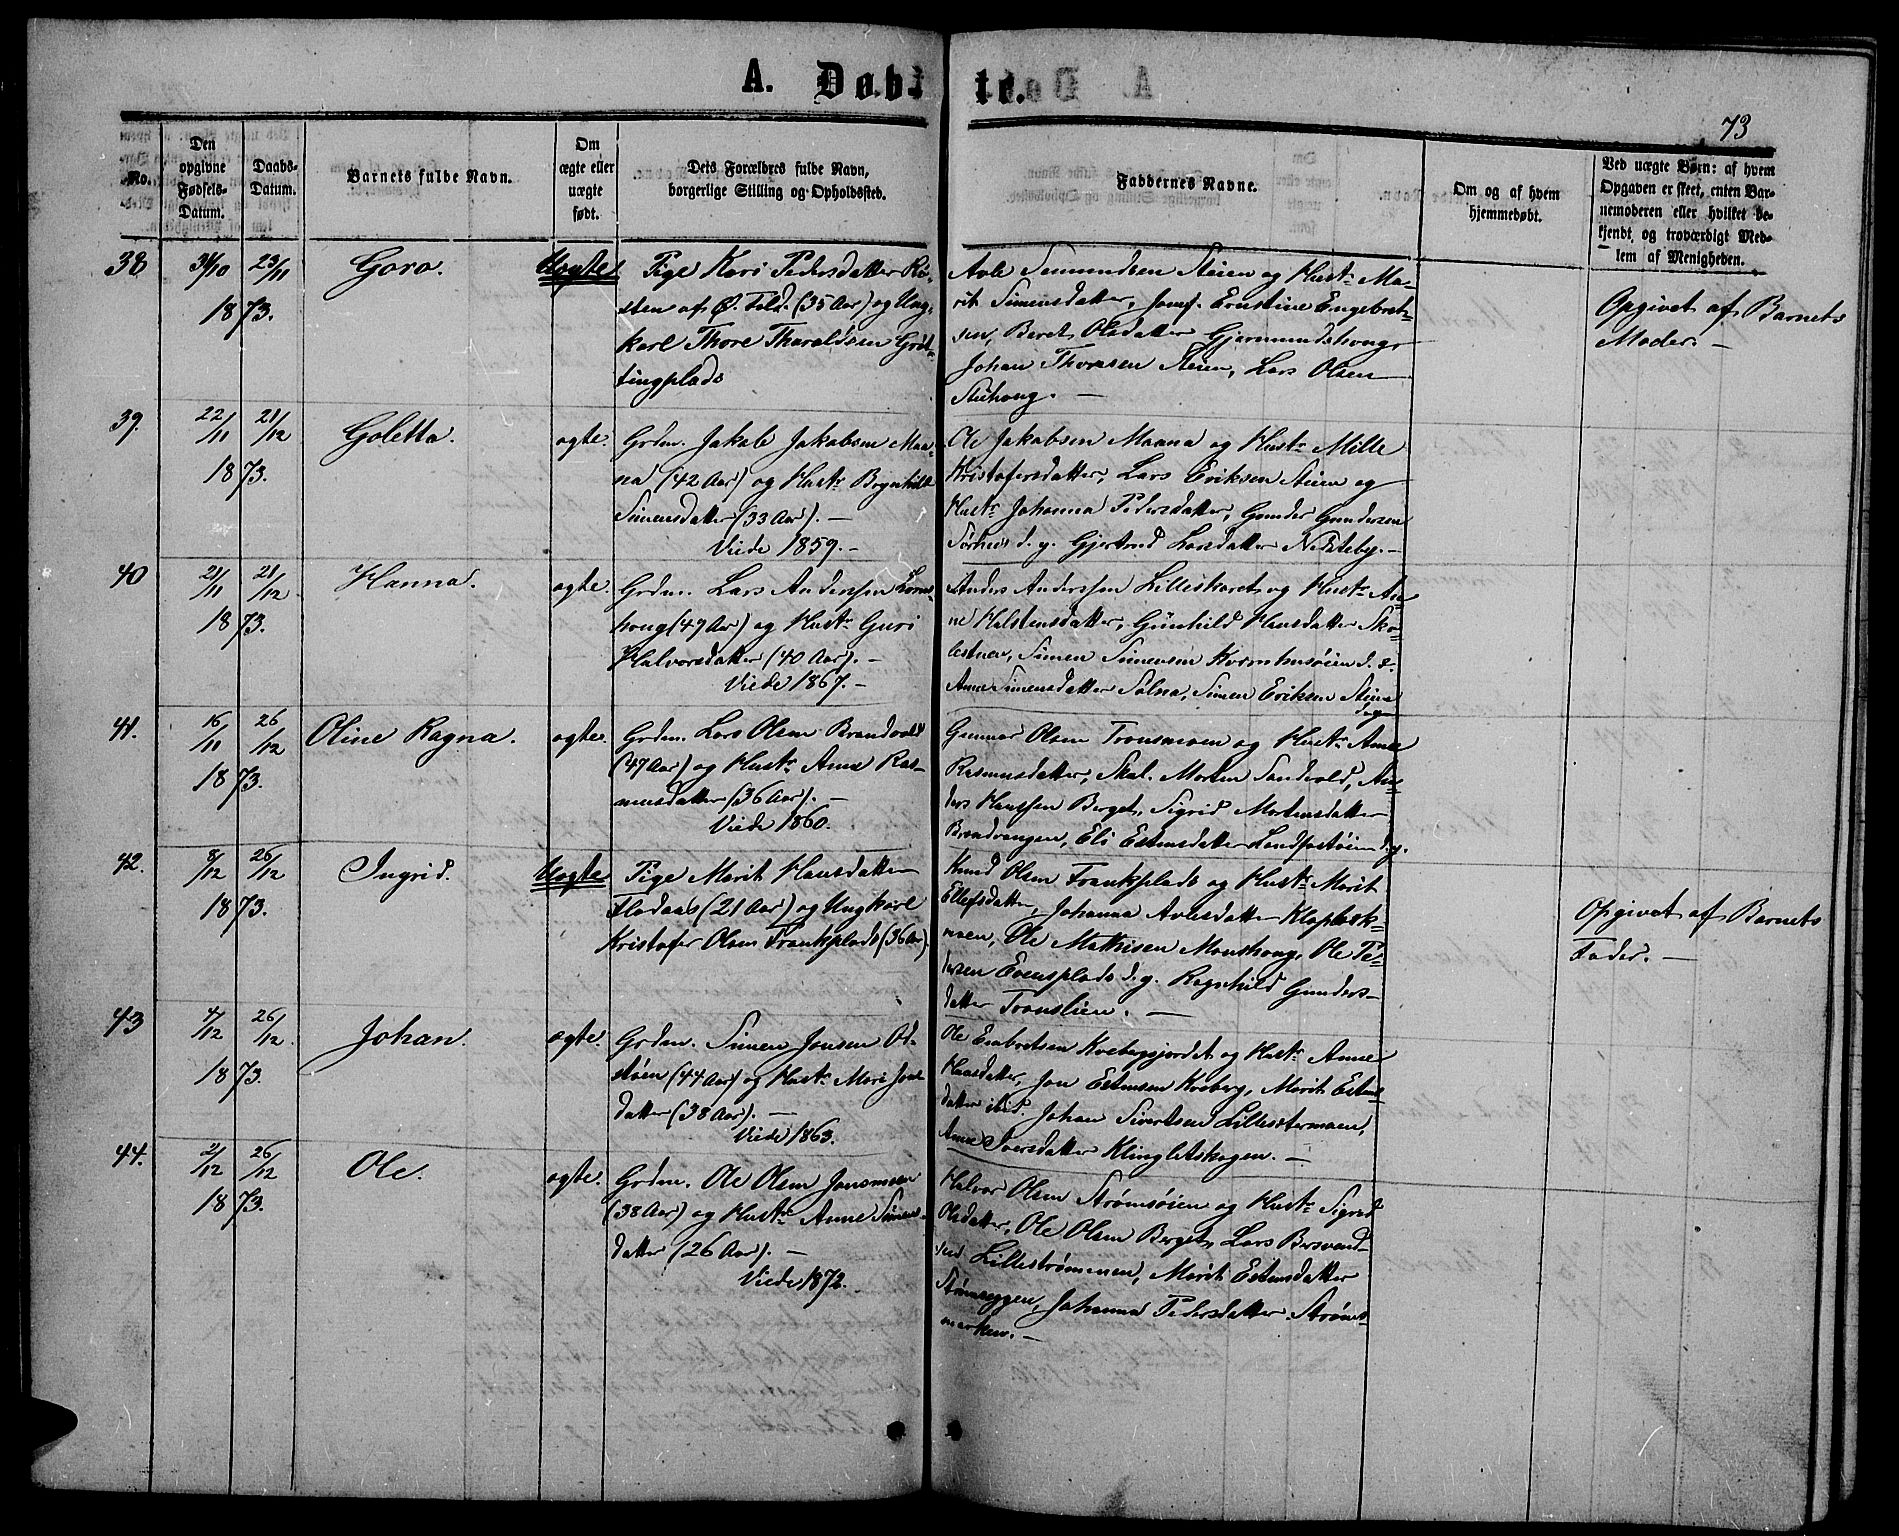 A. Døbte.
73
No.
Den opgivne Fødsels-Datum.
Daabs-Datum.
Barnets fulde Navn.
Om ægte eller uægte født.
Dets Forældres fulde Navn, borgerlige Stilling og Opholdssted.
Faddernes Navne.
Om og af hvem hjemmedøbt.
Ved uægte Børn: af hvem Opgaven er skeet, enten Barnemoderen eller hvilket bekjendt og troværdigt Medlem af Menigheden.
38
31/10 23/11
1873.
Goro.
Uægte
Pige Kari Pedersdatter Rø-
sten af Ø. Told. (35 Aar) og Ung-
karl Thore Tharaldsen Gröt-
tingplads
Avle Semundsen Steien og Hustr Ma-
rit Simensdatter, Jomf. Ernstine Engebret-
sen, Beret Olsdatter Gjermundshoug,
Johan Thoresen Steien, Lars Olsen
Stuhoug. —
Opgivet af Barnets
Moder. —
39.
22/11 21/12
1873.
Goletta.
ægte.
Grdm. Jakob Jakobsen Maa-
na (42 Aar) og Hustr Brynhild
Simensdatter (33 Aar). —
Viede 1859. —
Ole Jakobsen Maana og Hustr Mille
Kristofersdatter, Lars Eriksen Steien og
Hustr Johanna Pedersdatter, Gunder Gundersen
Sørhus d. y. Gjertrud Larsdatter N. Steby. —
40
21/11 21/12
1873.
Hanna.
ægte.
Grdm. Lars Anderssen
houg (47 Aar) og Hustr Guri
Halvorsdatter (40 Aar). —
Viede 1867. —
Anders Anderssen Lilleskaret og Hustr An-
ne Halstensdatter, Gunhild Hansdatter Sko-
lestuen, Simen Simensen Kornhusøien d. e.
Anne Simensdatter Solna, Simen Eriksen Steien
d. y.
41.
16/11 26/12
1873.
Oline Ragna.
ægte.
Grdm. Lars Olsen Brandvold
(47 Aar) og Hustr Anne Ras-
musdatter (36 Aar). —
Viede 1860.
Gunnar Olsen Tronsmoen og Hustr Anne
Rasmusdatter, Skol. Morten Sandvold, An-
ders Hanssen Berget, Sigrid Mortensdatter
Brandvangen, Eli Estensdatter Sandfostøien d. y.
42.
8/12 26/12
1873.
Ingrid.
Uægte
Pige Marit Hansdatter
Flodaas (21 Aar) og Ungkarl
Kristofer Olsen Trankplads (36 Aar).
Knud Olsen Trankplads og Hustr Marit
Ellefsdatter, Johanna Avlesdatter Klapbæk-
moen, Ole Mathisen Monshoug, Ole Pe-
dersen Evensplads d. y. Ragnhild Gunders-
datter Tronslien. —
Opgivet af Barnets
Fader. —
43
4/12 26/12
1873.
Johan.
ægte.
Grdm. Simen Jonsen Od-
støen (44 Aar) og Hustr Mari Jons-
datter (38 Aar). —
Viede 1863.
Ole Embretsen Kvebergsjordet og Hustr Anne
Hansdatter, Jon Estensen Kveberg, Marit Estens-
datter ibid. Johan Sivertsen Lillestermoen,
Anne Iversdatter Klingletshagen. —
44.
2/12 26/12
1873.
Ole.
ægte.
Grdm. Ole Olsen Jonsmoen
(38 Aar) og Hustr Anne Simens-
datter (26 Aar). —
Viede 1872.
Halvor Olsen Strømsøien og Hustr Sigrid
Olsdatter, Ole Olsen Berget, Lars Bersvend-
sen Lillestrømenen, Marit Estensdatter
Strømseggen, Johanna Pedersdatter Strøms-
marken. —